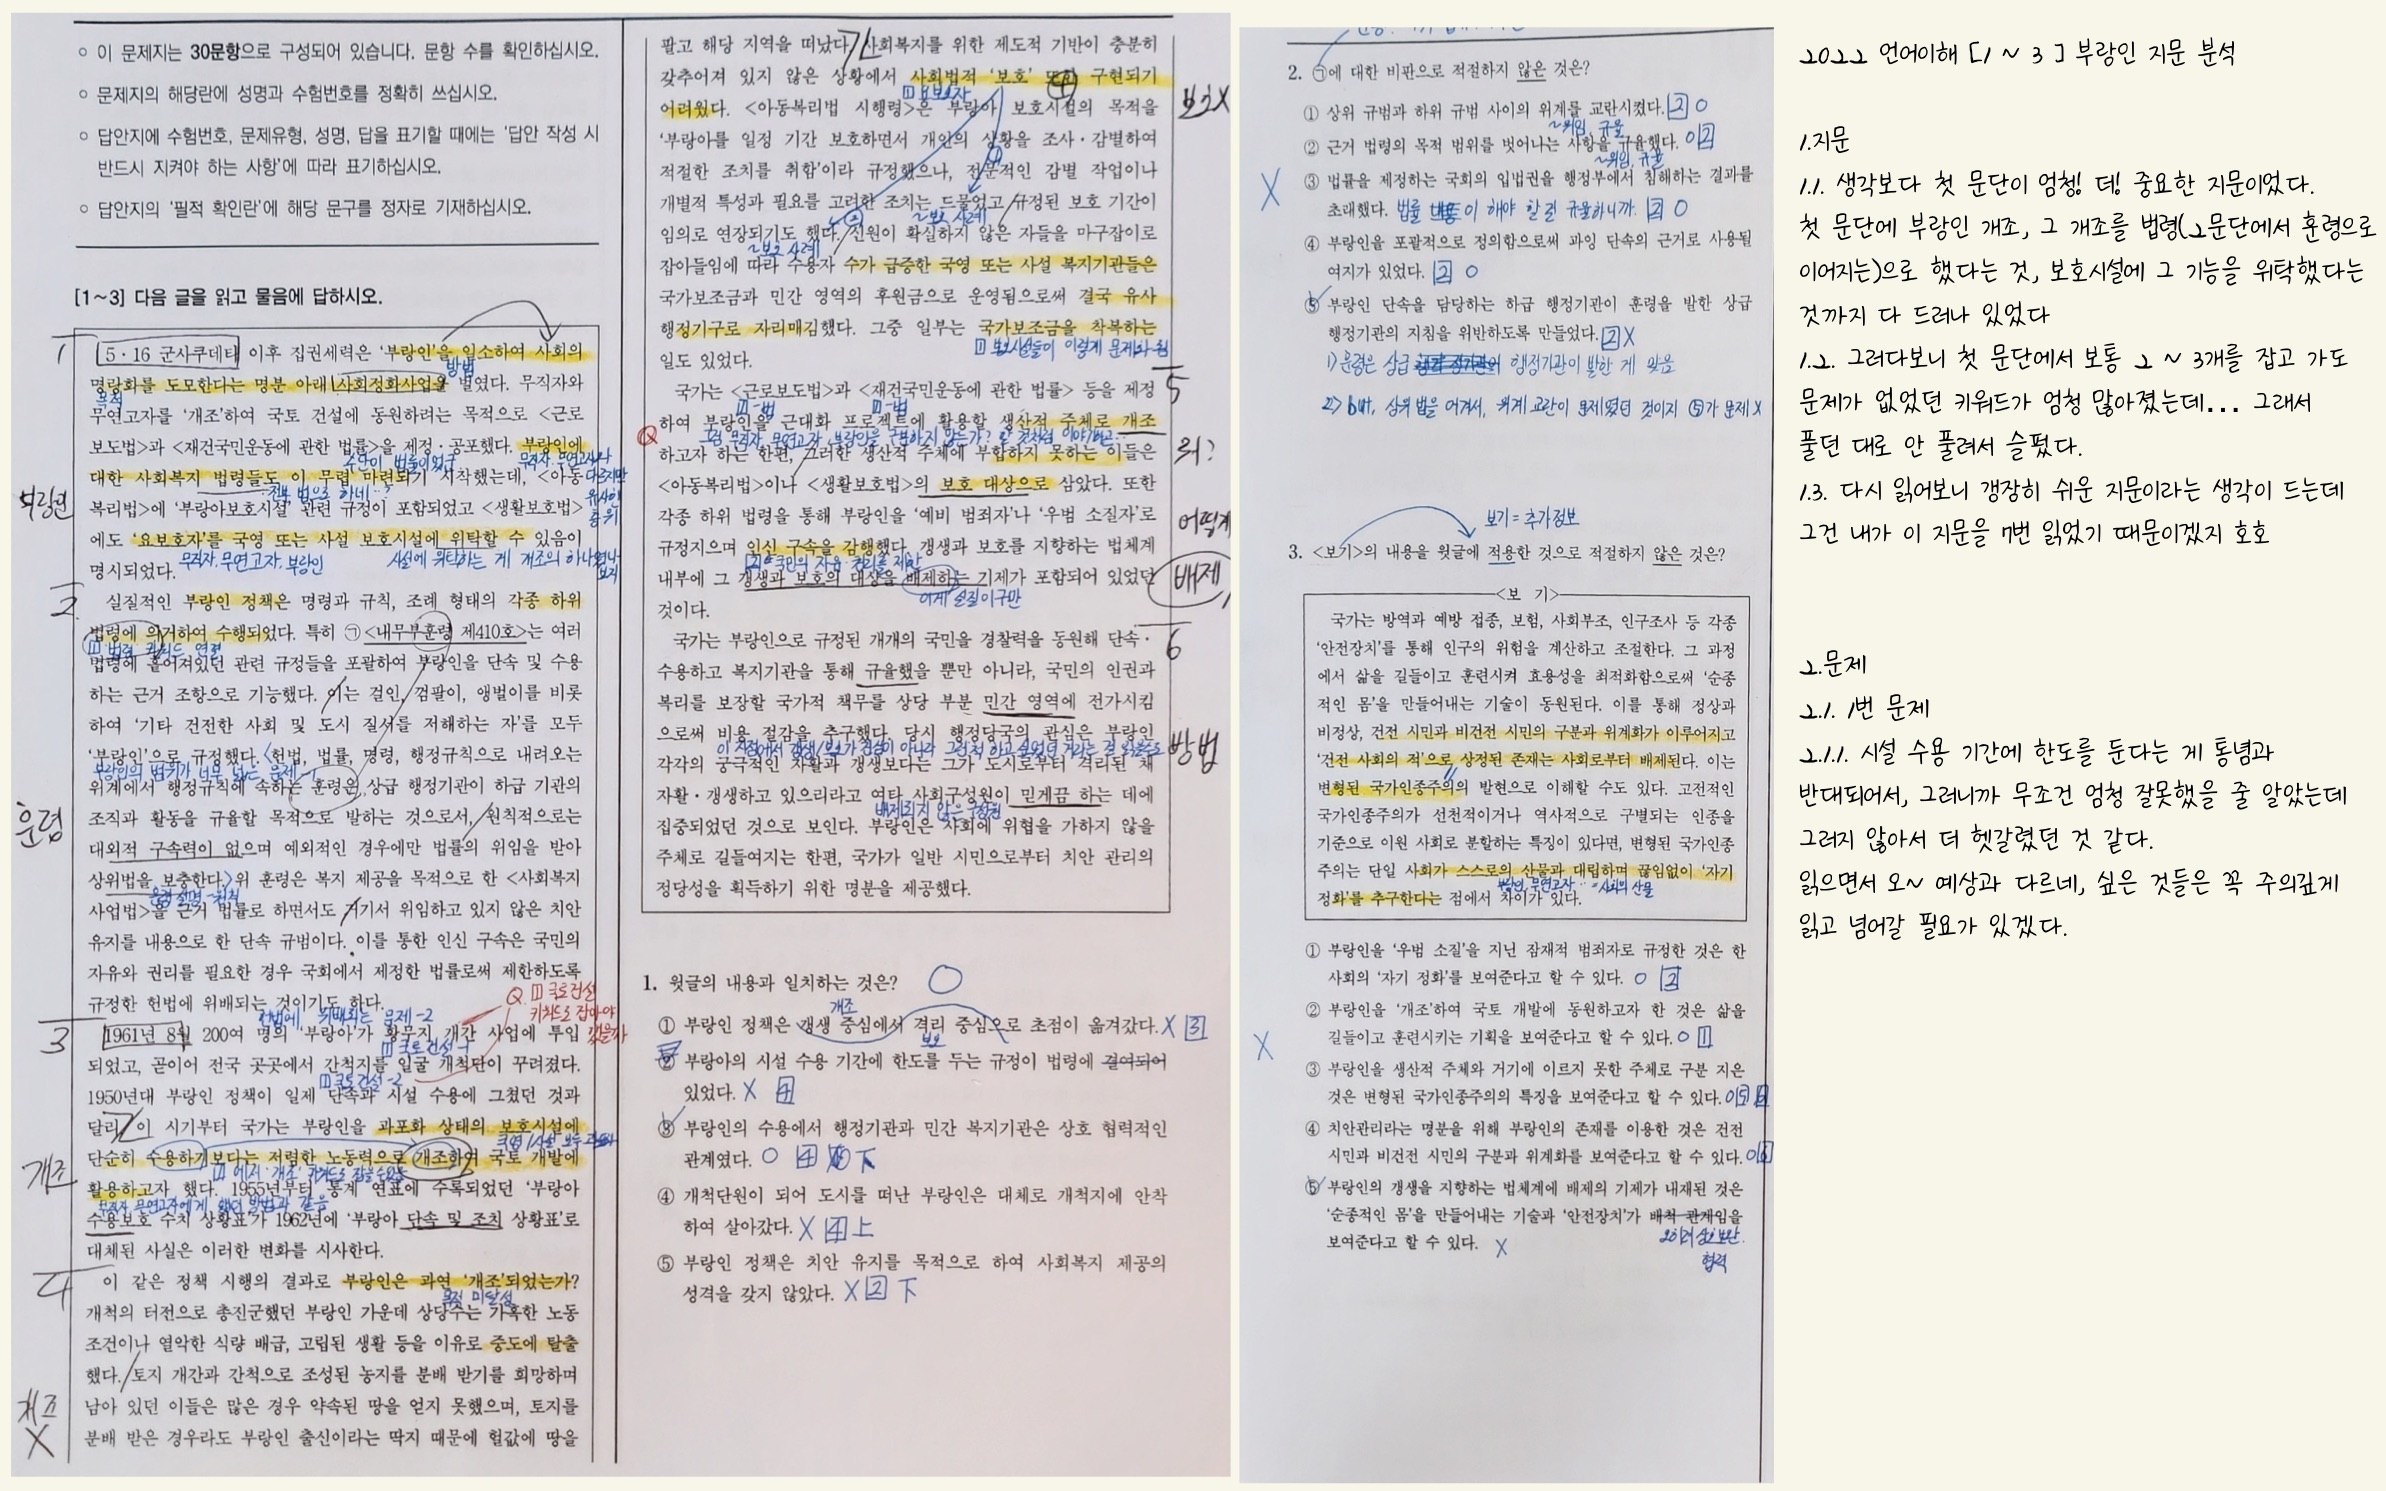 ○ 이 문제지는 30문항으로 구성되어 있습니다. 문항 수를 확인하십시오.
○ 문제지의 해당란에 성명과 수험번호를 정확히 쓰십시오.
○ 답안지에 수험번호, 문제유형, 성명, 답을 표기할 때에는 '답안 작성 시
반드시 지켜야 하는 사항'에 따라 표기하십시오.
○ 답안지의 '필적 확인란'에 해당 문구를 정자로 기재하십시오.
[1~3] 다음 글을 읽고 물음에 답하시오.
1
5·16 군사쿠데타 이후 집권세력은 '부랑인'을 일소하여 사회의
방법
명랑화를 도모한다는 명분 아래 사회정화사업을 벌였다. 무직자와
목적
무연고자를 '개조'하여 국토 건설에 동원하려는 목적으로 <근로
보도법>과 <재건국민운동에 관한 법률>을 제정·공포했다. 부랑인에
수단이 법률이었군
대한 사회복지 법령들도 이 무렵 마련되기 시작했는데, <아동
복리법>에 '부랑아보호시설' 관련 규정이 포함되었고 <생활보호법>
에도 '요보호자'를 국영 또는 사설 보호시설에 위탁할 수 있음이
무직자·무연고자·부랑인
시설에 위탁하는 게 개조의 하나였나
보지
명시되었다.
2
실질적인 부랑인 정책은 명령과 규칙, 조례 형태의 각종 하위
법령에 의거하여 수행되었다. 특히 ㉠<내무부훈령 제410호>는 여러
법령 키워드 연결
법령에 흩어져있던 관련 규정들을 포괄하여 부랑인을 단속 및 수용
하는 근거 조항으로 기능했다. 이는 걸인, 껌팔이, 앵벌이를 비롯
하여 '기타 건전한 사회 및 도시 질서를 저해하는 자'를 모두
'부랑인'으로 규정했다. 헌법, 법률, 명령, 행정규칙으로 내려오는
부랑인의 범위가 너무 넓은 문제-1
위계에서 행정규칙에 속하는 훈령은 상급 행정기관이 하급 기관의
훈령
조직과 활동을 규율할 목적으로 발하는 것으로서, 원칙적으로는
대외적 구속력이 없으며 예외적인 경우에만 법률의 위임을 받아
상위법을 보충한다. 위 훈령은 복지 제공을 목적으로 한 <사회복지
사업법>을 근거 법률로 하면서도 거기서 위임하고 있지 않은 치안
유지를 내용으로 한 단속 규범이다. 이를 통한 인신 구속은 국민의
자유와 권리를 필요한 경우 국회에서 제정한 법률로써 제한하도록
규정한 헌법에 위배되는 것이기도 하다.
헌법에 위배되는 문제-2
Q. 1 국토건설
키워드로 잡아야
3
1961년 8월 200여 명의 '부랑아'가 황무지 개간 사업에 투입
1 국토건설-1
되었고, 곧이어 전국 곳곳에서 간척지를 일굴 개척단이 꾸려졌다.
1 국토건설-2
1950년대 부랑인 정책이 일제 단속과 시설 수용에 그쳤던 것과
달리, 이 시기부터 국가는 부랑인을 과포화 상태의 보호시설에
단순히 수용하기보다는 저렴한 노동력으로 개조하여 국토 개발에
개조
활용하고자 했다. 1955년부터 통계 연표에 수록되었던 '부랑아
무직자·무연고자에게 했던 방법과 같음
수용보호 수치 상황표'가 1962년에 '부랑아 단속 및 조치 상황표'로
대체된 사실은 이러한 변화를 시사한다.
4
이 같은 정책 시행의 결과로 부랑인은 과연 '개조'되었는가?
목적 미달성
개척의 터전으로 총진군했던 부랑인 가운데 상당수는 가혹한 노동
조건이나 열악한 식량 배급, 고립된 생활 등을 이유로 중도에 탈출
했다. 토지 개간과 간척으로 조성된 농지를 분배 받기를 희망하며
개조
X
남아 있던 이들은 많은 경우 약속된 땅을 얻지 못했으며, 토지를
분배 받은 경우라도 부랑인 출신이라는 딱지 때문에 헐값에 땅을
팔고 해당 지역을 떠났다. 사회복지를 위한 제도적 기반이 충분히
갖추어져 있지 않은 상황에서 사회법적 '보호' 또한 구현되기
1 요보호자
보호X
어려웠다. <아동복리법 시행령>은 부랑아 보호시설의 목적을
'부랑아를 일정 기간 보호하면서 개인의 상황을 조사·감별하여
적절한 조치를 취함'이라 규정했으나, 전문적인 감별 작업이나
개별적 특성과 필요를 고려한 조치는 드물었고 규정된 보호 기간이
~보호 사례
임의로 연장되기도 했다. 신원이 확실하지 않은 자들을 마구잡이로
~보호 사례
잡아들임에 따라 수용자 수가 급증한 국영 또는 사설 복지기관들은
국가보조금과 민간 영역의 후원금으로 운영됨으로써 결국 유사
행정기구로 자리매김했다. 그중 일부는 국가보조금을 착복하는
일도 있었다.
5
국가는 <근로보도법>과 <재건국민운동에 관한 법률> 등을 제정
하여 부랑인을 근대화 프로젝트에 활용할 생산적 주체로 개조
Q
하고자 하는 한편, 그러한 생산적 주체에 부합하지 못하는 이들은
<아동복리법>이나 <생활보호법>의 보호 대상으로 삼았다. 또한
각종 하위 법령을 통해 부랑인을 '예비 범죄자'나 '우범 소질자'로
어떻게
규정지으며 인신 구속을 감행했다. 갱생과 보호를 지향하는 법체계
2 국민의 자유·권리를 제한
내부에 그 갱생과 보호의 대상을 배제하는 기제가 포함되어 있었던
배제
이게 실질이구만
것이다.
6
국가는 부랑인으로 규정된 개개의 국민을 경찰력을 동원해 단속·
수용하고 복지기관을 통해 규율했을 뿐만 아니라, 국민의 인권과
복리를 보장할 국가적 책무를 상당 부분 민간 영역에 전가시킴
으로써 비용 절감을 추구했다. 당시 행정당국의 관심은 부랑인
방법
각각의 궁극적인 자활과 갱생보다는 그가 도시로부터 격리된 채
자활·갱생하고 있으리라고 여타 사회구성원이 믿게끔 하는 데에
배제되지 않은 구성원
집중되었던 것으로 보인다. 부랑인은 사회에 위협을 가하지 않을
주체로 길들여지는 한편, 국가가 일반 시민으로부터 치안 관리의
정당성을 획득하기 위한 명분을 제공했다.
1. 윗글의 내용과 일치하는 것은?
개조
① 부랑인 정책은 갱생 중심에서 격리 중심으로 초점이 옮겨갔다. X 3
보호
② 부랑아의 시설 수용 기간에 한도를 두는 규정이 법령에 결여되어
있었다. X 4
③ 부랑인의 수용에서 행정기관과 민간 복지기관은 상호 협력적인
관계였다. ○ 4 下
④ 개척단원이 되어 도시를 떠난 부랑인은 대체로 개척지에 안착
하여 살아갔다. X 4 上
⑤ 부랑인 정책은 치안 유지를 목적으로 하여 사회복지 제공의
성격을 갖지 않았다. X 2 下
2. ㉠에 대한 비판으로 적절하지 않은 것은?
① 상위 규범과 하위 규범 사이의 위계를 교란시켰다. 2 O
~위임, 규율
② 근거 법령의 목적 범위를 벗어나는 사항을 규율했다. O 2
~위임, 규율
X
③ 법률을 제정하는 국회의 입법권을 행정부에서 침해하는 결과를
초래했다. 법률이 해야 할 걸 규율하니까. 2 O
④ 부랑인을 포괄적으로 정의함으로써 과잉 단속의 근거로 사용될
여지가 있었다. 2 O
⑤ 부랑인 단속을 담당하는 하급 행정기관이 훈령을 발한 상급
행정기관의 지침을 위반하도록 만들었다. 2 X
1) 훈령은 상급 행정기관이 발한 게 맞음
2) but, 상위법을 어겨서, 위계 교란이 문제였던 것이지 ⑤가 문제 X
보기 = 추가정보
3. <보기>의 내용을 윗글에 적용한 것으로 적절하지 않은 것은?
<보 기>
국가는 방역과 예방 접종, 보험, 사회부조, 인구조사 등 각종
'안전장치'를 통해 인구의 위험을 계산하고 조절한다. 그 과정
에서 삶을 길들이고 훈련시켜 효용성을 최적화함으로써 '순종
적인 몸'을 만들어내는 기술이 동원된다. 이를 통해 정상과
비정상, 건전 시민과 비건전 시민의 구분과 위계화가 이루어지고
'건전 사회의 적'으로 상정된 존재는 사회로부터 배제된다. 이는
변형된 국가인종주의의 발현으로 이해할 수도 있다. 고전적인
국가인종주의가 선천적이거나 역사적으로 구별되는 인종을
기준으로 이원 사회로 분할하는 특징이 있다면, 변형된 국가인종
주의는 단일 사회가 스스로의 산물과 대립하며 끊임없이 '자기
부랑인, 무연고자… = 사회의 산물
정화'를 추구한다는 점에서 차이가 있다.
① 부랑인을 '우범 소질'을 지닌 잠재적 범죄자로 규정한 것은 한
사회의 '자기 정화'를 보여준다고 할 수 있다. O 2
② 부랑인을 '개조'하여 국토 개발에 동원하고자 한 것은 삶을
X
길들이고 훈련시키는 기획을 보여준다고 할 수 있다. O 1
③ 부랑인을 생산적 주체와 거기에 이르지 못한 주체로 구분 지은
것은 변형된 국가인종주의의 특징을 보여준다고 할 수 있다. O 5
④ 치안관리라는 명분을 위해 부랑인의 존재를 이용한 것은 건전
시민과 비건전 시민의 구분과 위계화를 보여준다고 할 수 있다. O 6
⑤ 부랑인의 갱생을 지향하는 법체계에 배제의 기제가 내재된 것은
'순종적인 몸'을 만들어내는 기술과 '안전장치'가 배척 관계임을
보여준다고 할 수 있다. X
협력
2022 언어이해 [1 ~ 3] 부랑인 지문 분석
1.지문
1.1. 생각보다 첫 문단이 엄청! 데! 중요한 지문이었다.
첫 문단에 부랑인 개조, 그 개조를 법령(2문단에서 훈령으로
이어지는)으로 했다는 것, 보호시설에 그 기능을 위탁했다는
것까지 다 드러나 있었다
1.2. 그러다보니 첫 문단에서 보통 2 ~ 3개를 잡고 가도
문제가 없었던 키워드가 엄청 많아졌는데... 그래서
풀던 대로 안 풀려서 슬펐다.
1.3. 다시 읽어보니 굉장히 쉬운 지문이라는 생각이 드는데
그건 내가 이 지문을 7번 읽었기 때문이겠지 호호
2.문제
2.1. 1번 문제
2.1.1. 시설 수용 기간에 한도를 둔다는 게 통념과
반대되어서, 그러니까 무조건 엄청 잘못했을 줄 알았는데
그러지 않아서 더 헷갈렸던 것 같다.
읽으면서 오~ 예상과 다르네, 싶은 것들은 꼭 주의깊게
읽고 넘어갈 필요가 있겠다.